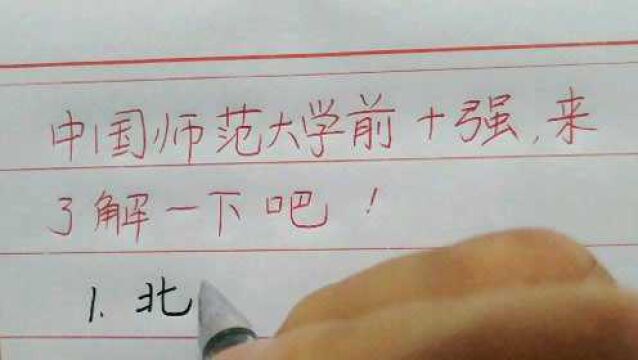 中国师范大学前十强,来
了解一下吧!
1. 北